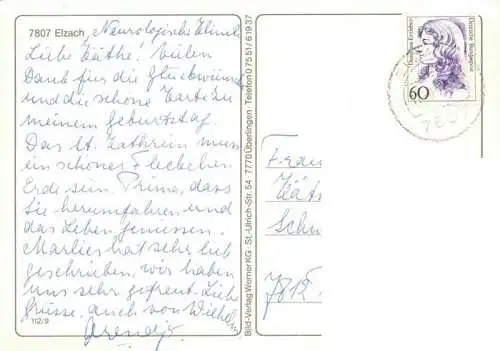 7807 Elzach, Neurologische Klinik
Liebe Käthe! Vielen
Dank für die Glückwünsche
und die schöne Karte zu
meinem Geburtstag.
Das St. Kathrein muss
ein schönes Fleckchen
Erde sein. Prima, dass
Sie herumfahren und
das Leben geniessen.
Marlies hat sehr lieb
geschrieben, wir haben
uns sehr gefreut. Liebe
Grüsse, auch von Wilhelm
112/9
Bild-Verlag Werner KG · St.-Ulrich-Str. 54 · 7770 Überlingen · Telefon 0 75 51 / 6 19 37
Deutsche Bundespost
60
7807
Frau
Kät
Schu
7815